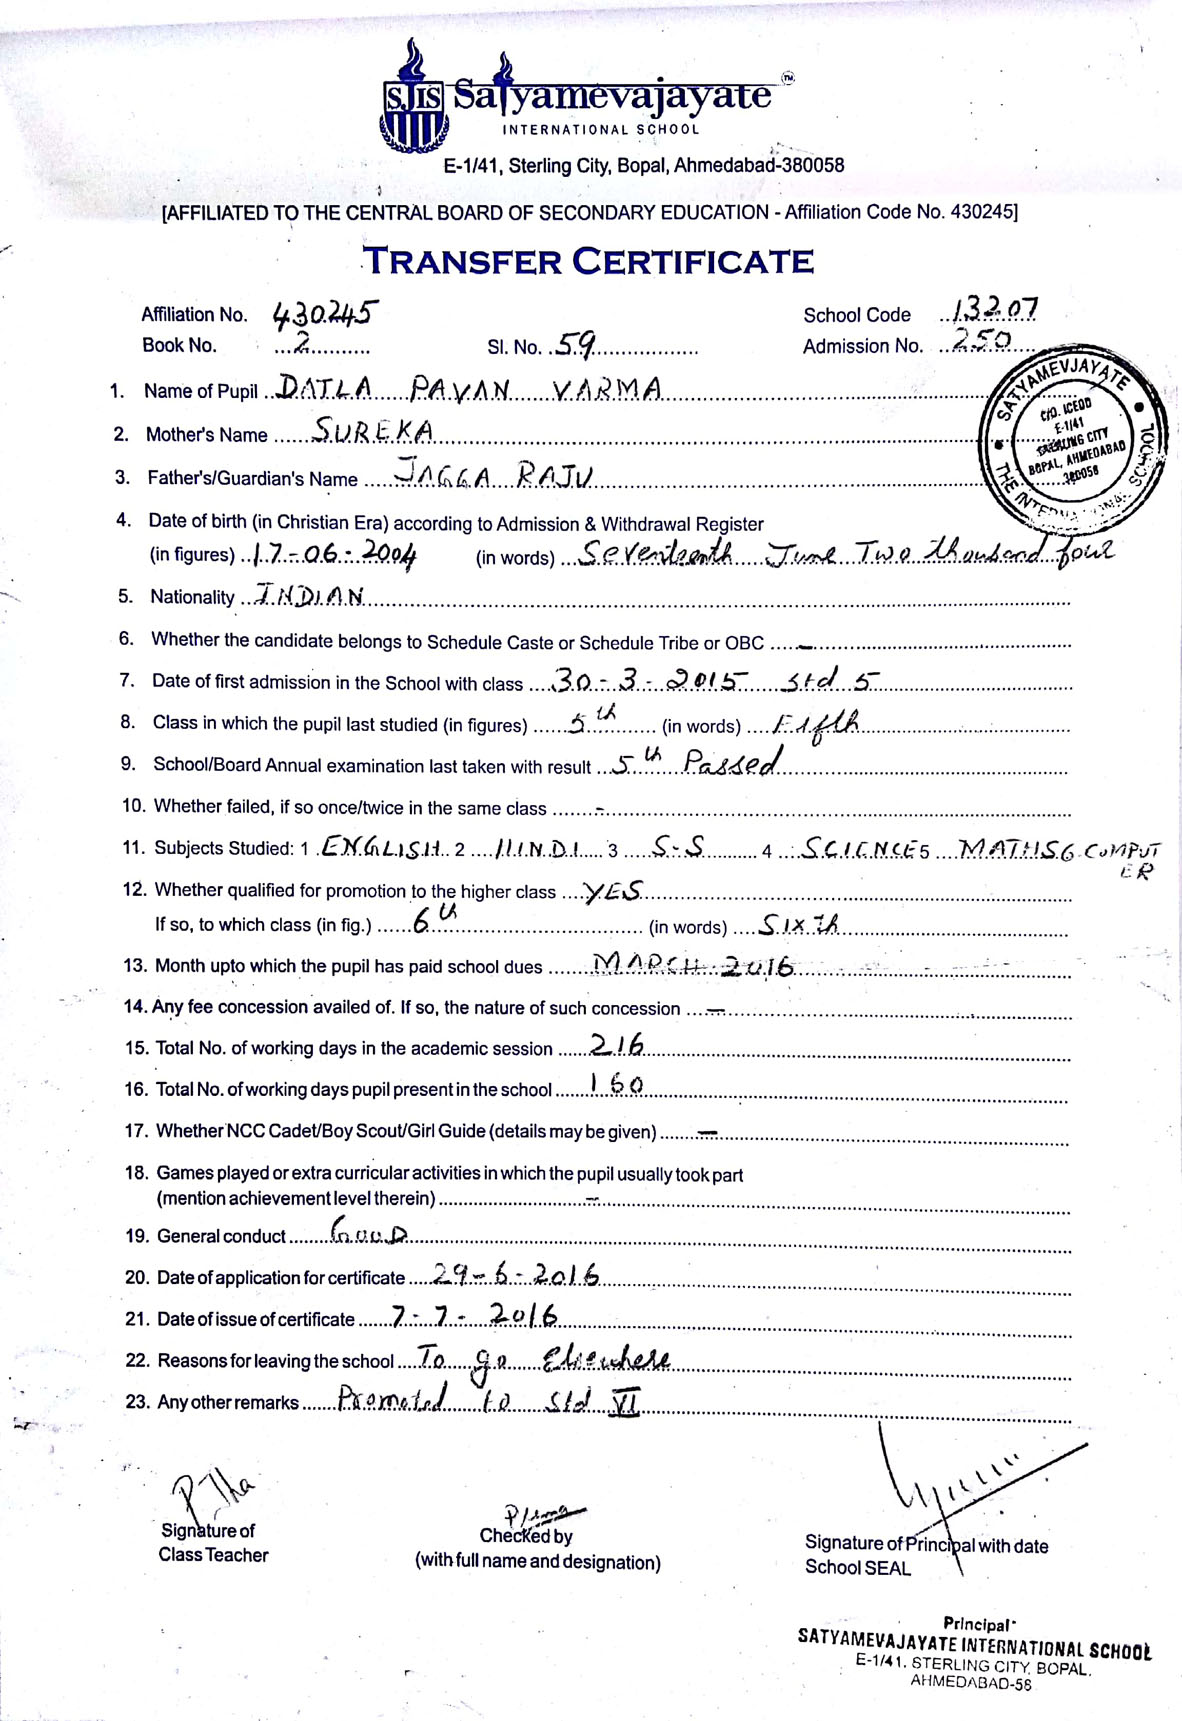 SJIS Satyamevajayate TM
INTERNATIONAL SCHOOL
E-1/41, Sterling City, Bopal, Ahmedabad-380058
[AFFILIATED TO THE CENTRAL BOARD OF SECONDARY EDUCATION - Affiliation Code No. 430245]
TRANSFER CERTIFICATE
Affiliation No. 430245 School Code 13207
Book No. 2 Sl. No. 59 Admission No. 250
SATYAMEVJAYATE THE INTERNATIONAL SCHOOL
C/O. ICEOD
E-1/41
STERLING CITY
BOPAL, AHMEDABAD
380058
1. Name of Pupil DATLA PAVAN VARMA
2. Mother's Name SUREKA
3. Father's/Guardian's Name JAGGA RAJU
4. Date of birth (in Christian Era) according to Admission & Withdrawal Register
(in figures) 17-06-2004 (in words) Seventeenth June Two thousand four
5. Nationality INDIAN
6. Whether the candidate belongs to Schedule Caste or Schedule Tribe or OBC -
7. Date of first admission in the School with class 30-3-2015 std 5
8. Class in which the pupil last studied (in figures) 5th (in words) Fifth
9. School/Board Annual examination last taken with result 5th Passed
10. Whether failed, if so once/twice in the same class -
11. Subjects Studied: 1 ENGLISH 2 HINDI 3 S-S 4 SCIENCE 5 MATHS 6 COMPUTER
12. Whether qualified for promotion to the higher class YES
If so, to which class (in fig.) 6th (in words) Sixth
13. Month upto which the pupil has paid school dues MARCH-2016
14. Any fee concession availed of. If so, the nature of such concession -
15. Total No. of working days in the academic session 216
16. Total No. of working days pupil present in the school 160
17. Whether NCC Cadet/Boy Scout/Girl Guide (details may be given) -
18. Games played or extra curricular activities in which the pupil usually took part
(mention achievement level therein) -
19. General conduct GOOD
20. Date of application for certificate 29-6-2016
21. Date of issue of certificate 7-7-2016
22. Reasons for leaving the school To go Elsewhere
23. Any other remarks Promoted to Std VI
P Jha
Signature of
Class Teacher
Checked by
(with full name and designation)
Signature of Principal with date
School SEAL
Principal
SATYAMEVAJAYATE INTERNATIONAL SCHOOL
E-1/41, STERLING CITY, BOPAL,
AHMEDABAD-58